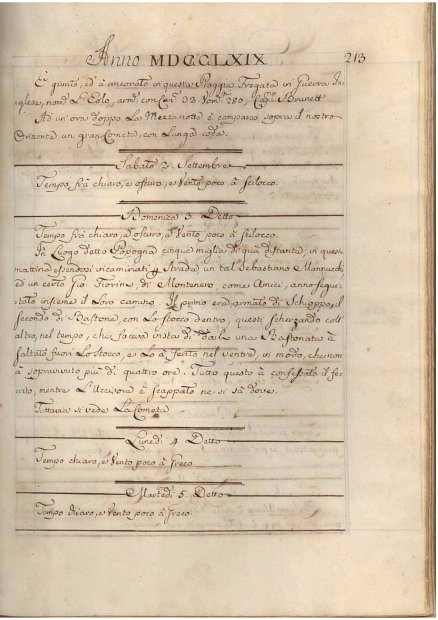 Anno MDCCLXIX 213
E' giunto, ed à ancorato in questa Piaggia Fregata in Guerra In-
glese, nom. L'Eolo, arm. con Can. 32. Uom. 280, Cap. Brunett
Ad un'ora doppo La Mezzanotte è comparso sopra il nostro
Orizonta un gran Cometa, con Lunga coda.
Sabato 2. Settembre
Tempo frà chiaro, e oscuro, e Vento poco à Scilocco.
Domenica 3. Detto
Tempo frà chiaro, e oscuro, e Vento poco à Scilocco.
In Luogo detto Popogna cinque miglia di qua distante, in questa
mattina essendosi incaminati p Strada un tal Sebastiano
ed un certo Gio: Fiorini, di Montenero, come Amici, anno segui-
tato insieme il Loro camino. Il primo era armato di Schioppo, il
secondo di Bastone, con Lo stocco dentro, questi scherzando coll'
altro, nel tempo, che faceva vista di darli una Bastonata è
saltato fuori Lo stocco, e Lo à ferito nel ventre, in modo, che non
à sopravivuto più di quattro ore. Tutto questo à confessato il fe-
rito, mentre L'Uccisore è scappato ne si sà dove.
Tuttavia si vede La Cometa
Lunedi 4. Detto
Tempo chiaro, e Vento poco à Greco.
Martedi 5. Detto
Tempo chiaro, e Vento poco à Greco.